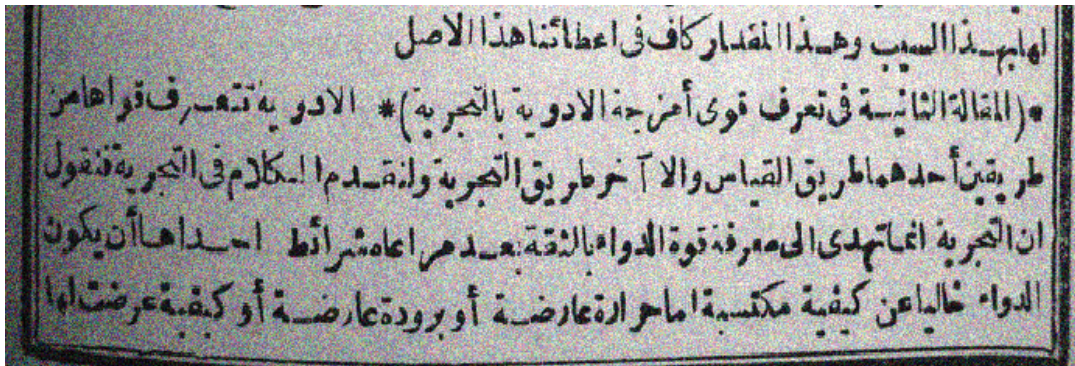 لها بهذا السبب وهذا المقدار كاف فى اعطائنا هذا الاصل
*(المقالة الثانية فى تعرف قوى أمزجة الادوية بالتجربة)* الادوية تتعرف قواها من
طريقين أحدهما طريق القياس والا آخر طريق التجربة ولنقدم الكلام فى التجربة فنقول
ان التجربة انما تهدى الى معرفة قوة الدواء بالثقة بعد مراعاة شرائط احداها أن يكون
الدواء خاليا عن كيفية مكتسبة اما حرارة عارضة أو برودة عارضة أو كيفية عرضت لها